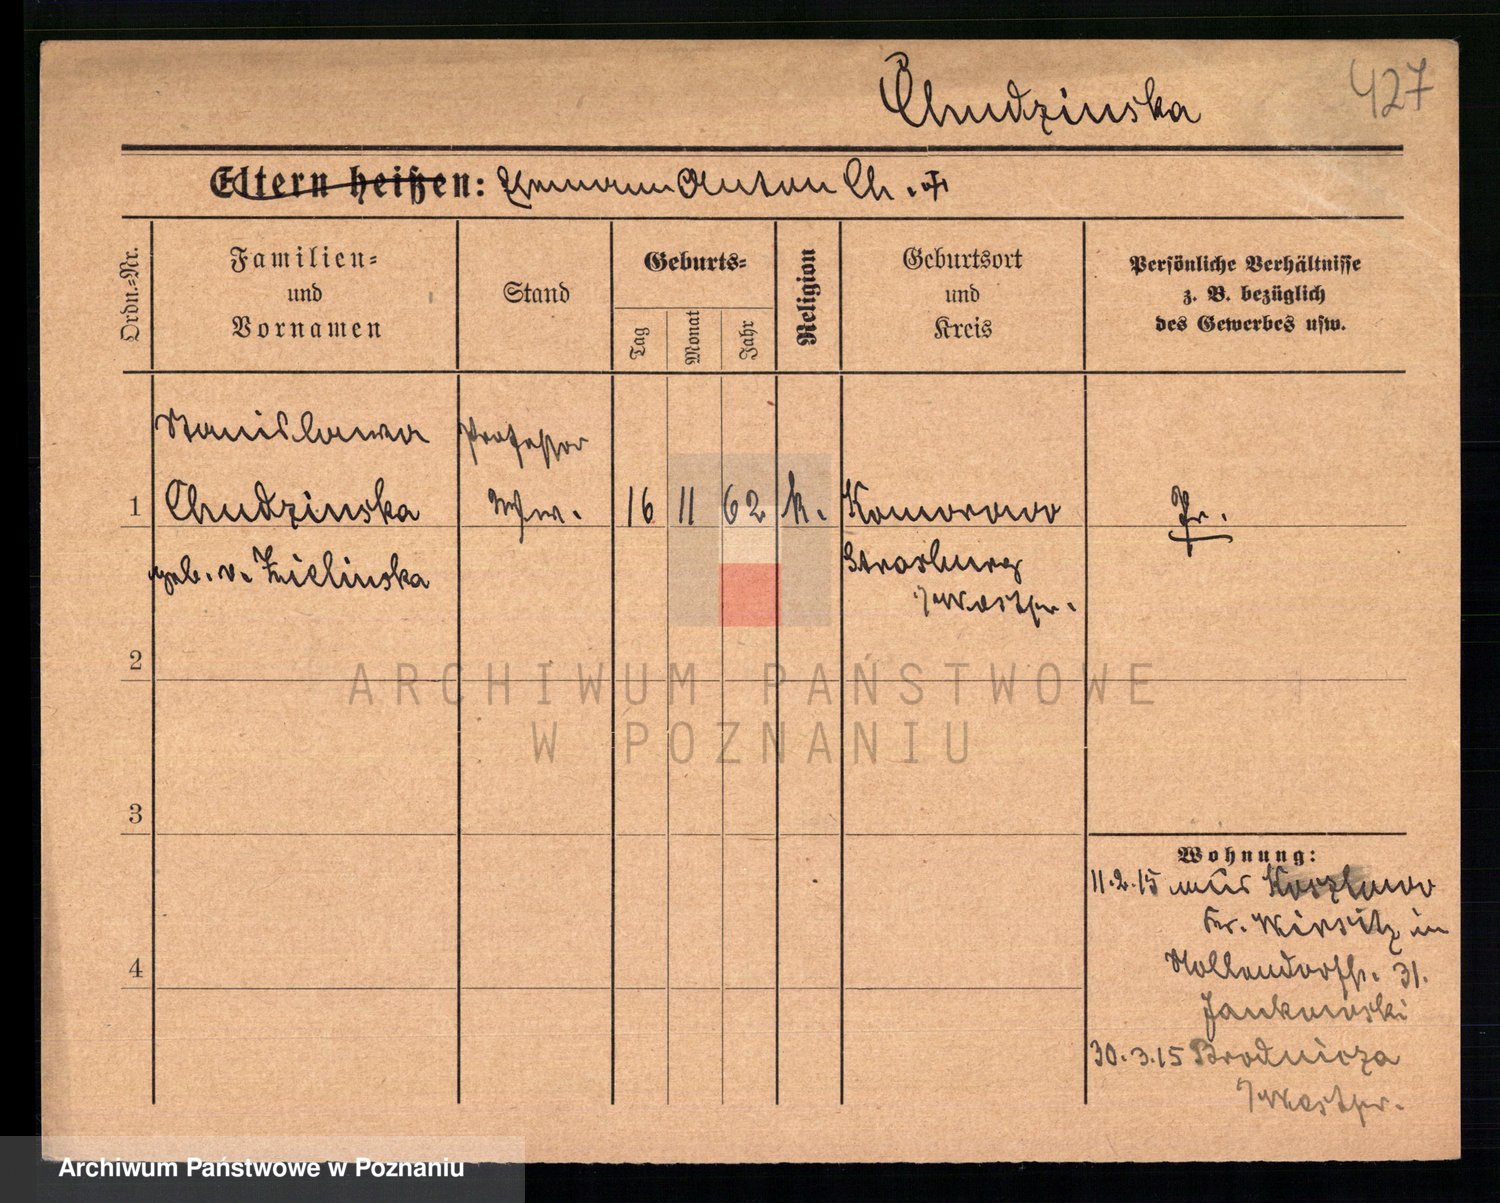 Chudzinska
427
Eltern heißen: Ehemann Anton Ch. †
Ordn.=Nr.
Familien=
und
Vornamen
Stand
Geburts=
Tag
Monat
Jahr
Religion
Geburtsort
und
Kreis
Persönliche Verhältnisse
z. B. bezüglich
des Gewerbes usw.
Stanislawa Professor
1 Chudzinska Ww. 16 11 62 k. Komorowo Pr.
geb. v. Zielinska Strasburg
/Westpr.
2
3
4
Wohnung:
11.2.15 aus Koszlowo
Kr. Wirsitz in
Nollendorfstr. 31.
Jankowski
30.3.15 Brodnicza
/Westpr.
ARCHIWUM PAŃSTWOWE
W POZNANIU
Archiwum Państwowe w Poznaniu